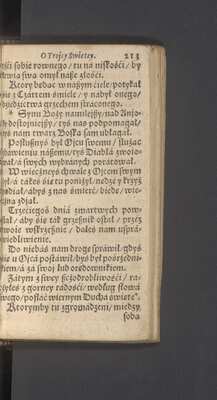 O Troycy Swietey. 213
ści sobie rownego / tu na niskości / by
krwią swą omył nasze złości.
Ktory będąc w naszym ciele / potykał
się z Czartem śmiele / y nabył onego /
dziedzictwá grzechem straconego.
* Synu Boży namilejßy / nád Anjo-
ły dostojniejßy / tyś nas podpomagał /
tyś nam twarz Boską sam ubłagał.
Posłußnyś był Ojcu swemu / służąc
zbáwieniu nászemu / tyś Diabłá zwoio-
wał / á swych wybránych porátował.
W wiecznejś chwale z Ojcem swym
był / á tákeś się tu poniżył / nędze y krzyż
podział / ábyś z nas śmierć / biedę / wię-
zdjął.
Trzeciegoś dniá zmartwych pow-
stał / áby się ták grzeßnik ostał / przez
twoie wskrzeßnie / dáłeś nam uspra-
wiedliwienie.
Do niebáś nam drogę spráwił / gdyś
się u Ojcá postáwił / byś był pośrzedni-
kiem / á zá swoj lud orędownikiem.
Zátym z swey szczodrobliwości /
z gorney rádości / według słowá
twego / posłáć wiernym Duchá świete°.
Ktorymby tu zgromádzeni / między
sobą